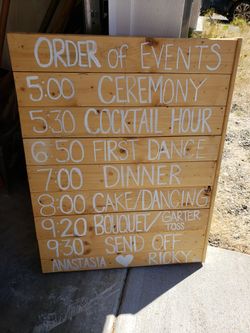 ORDER of EVENTS
5:00 CEREMONY
5:30 COCKTAIL HOUR
6:50 FIRST DANCE
7:00 DINNER
8:00 CAKE/DANCING
9:20 BOUQUET/GARTER TOSS
9:30 SEND OFF
ANASTASIA ♥ RICKY